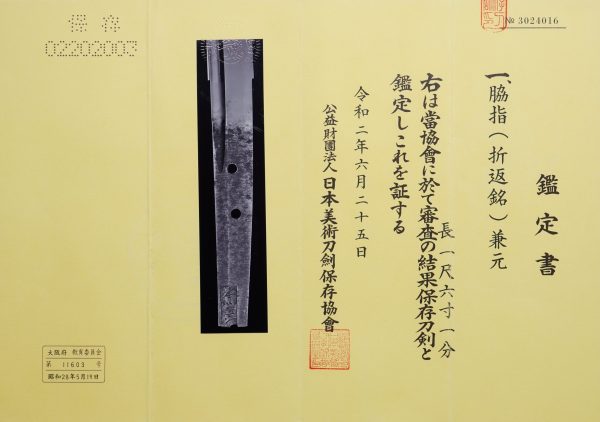 № 3024016
鑑定書
一、脇指(折返銘)兼元
長一尺六寸一分
右は當協會に於て審査の結果保存刀剣と
鑑定しこれを証する
令和二年六月二十五日
公益財團法人 日本美術刀劍保存協會
保存
02202003
大阪府 教育委員会
第 11603 号
昭和28年5月19日